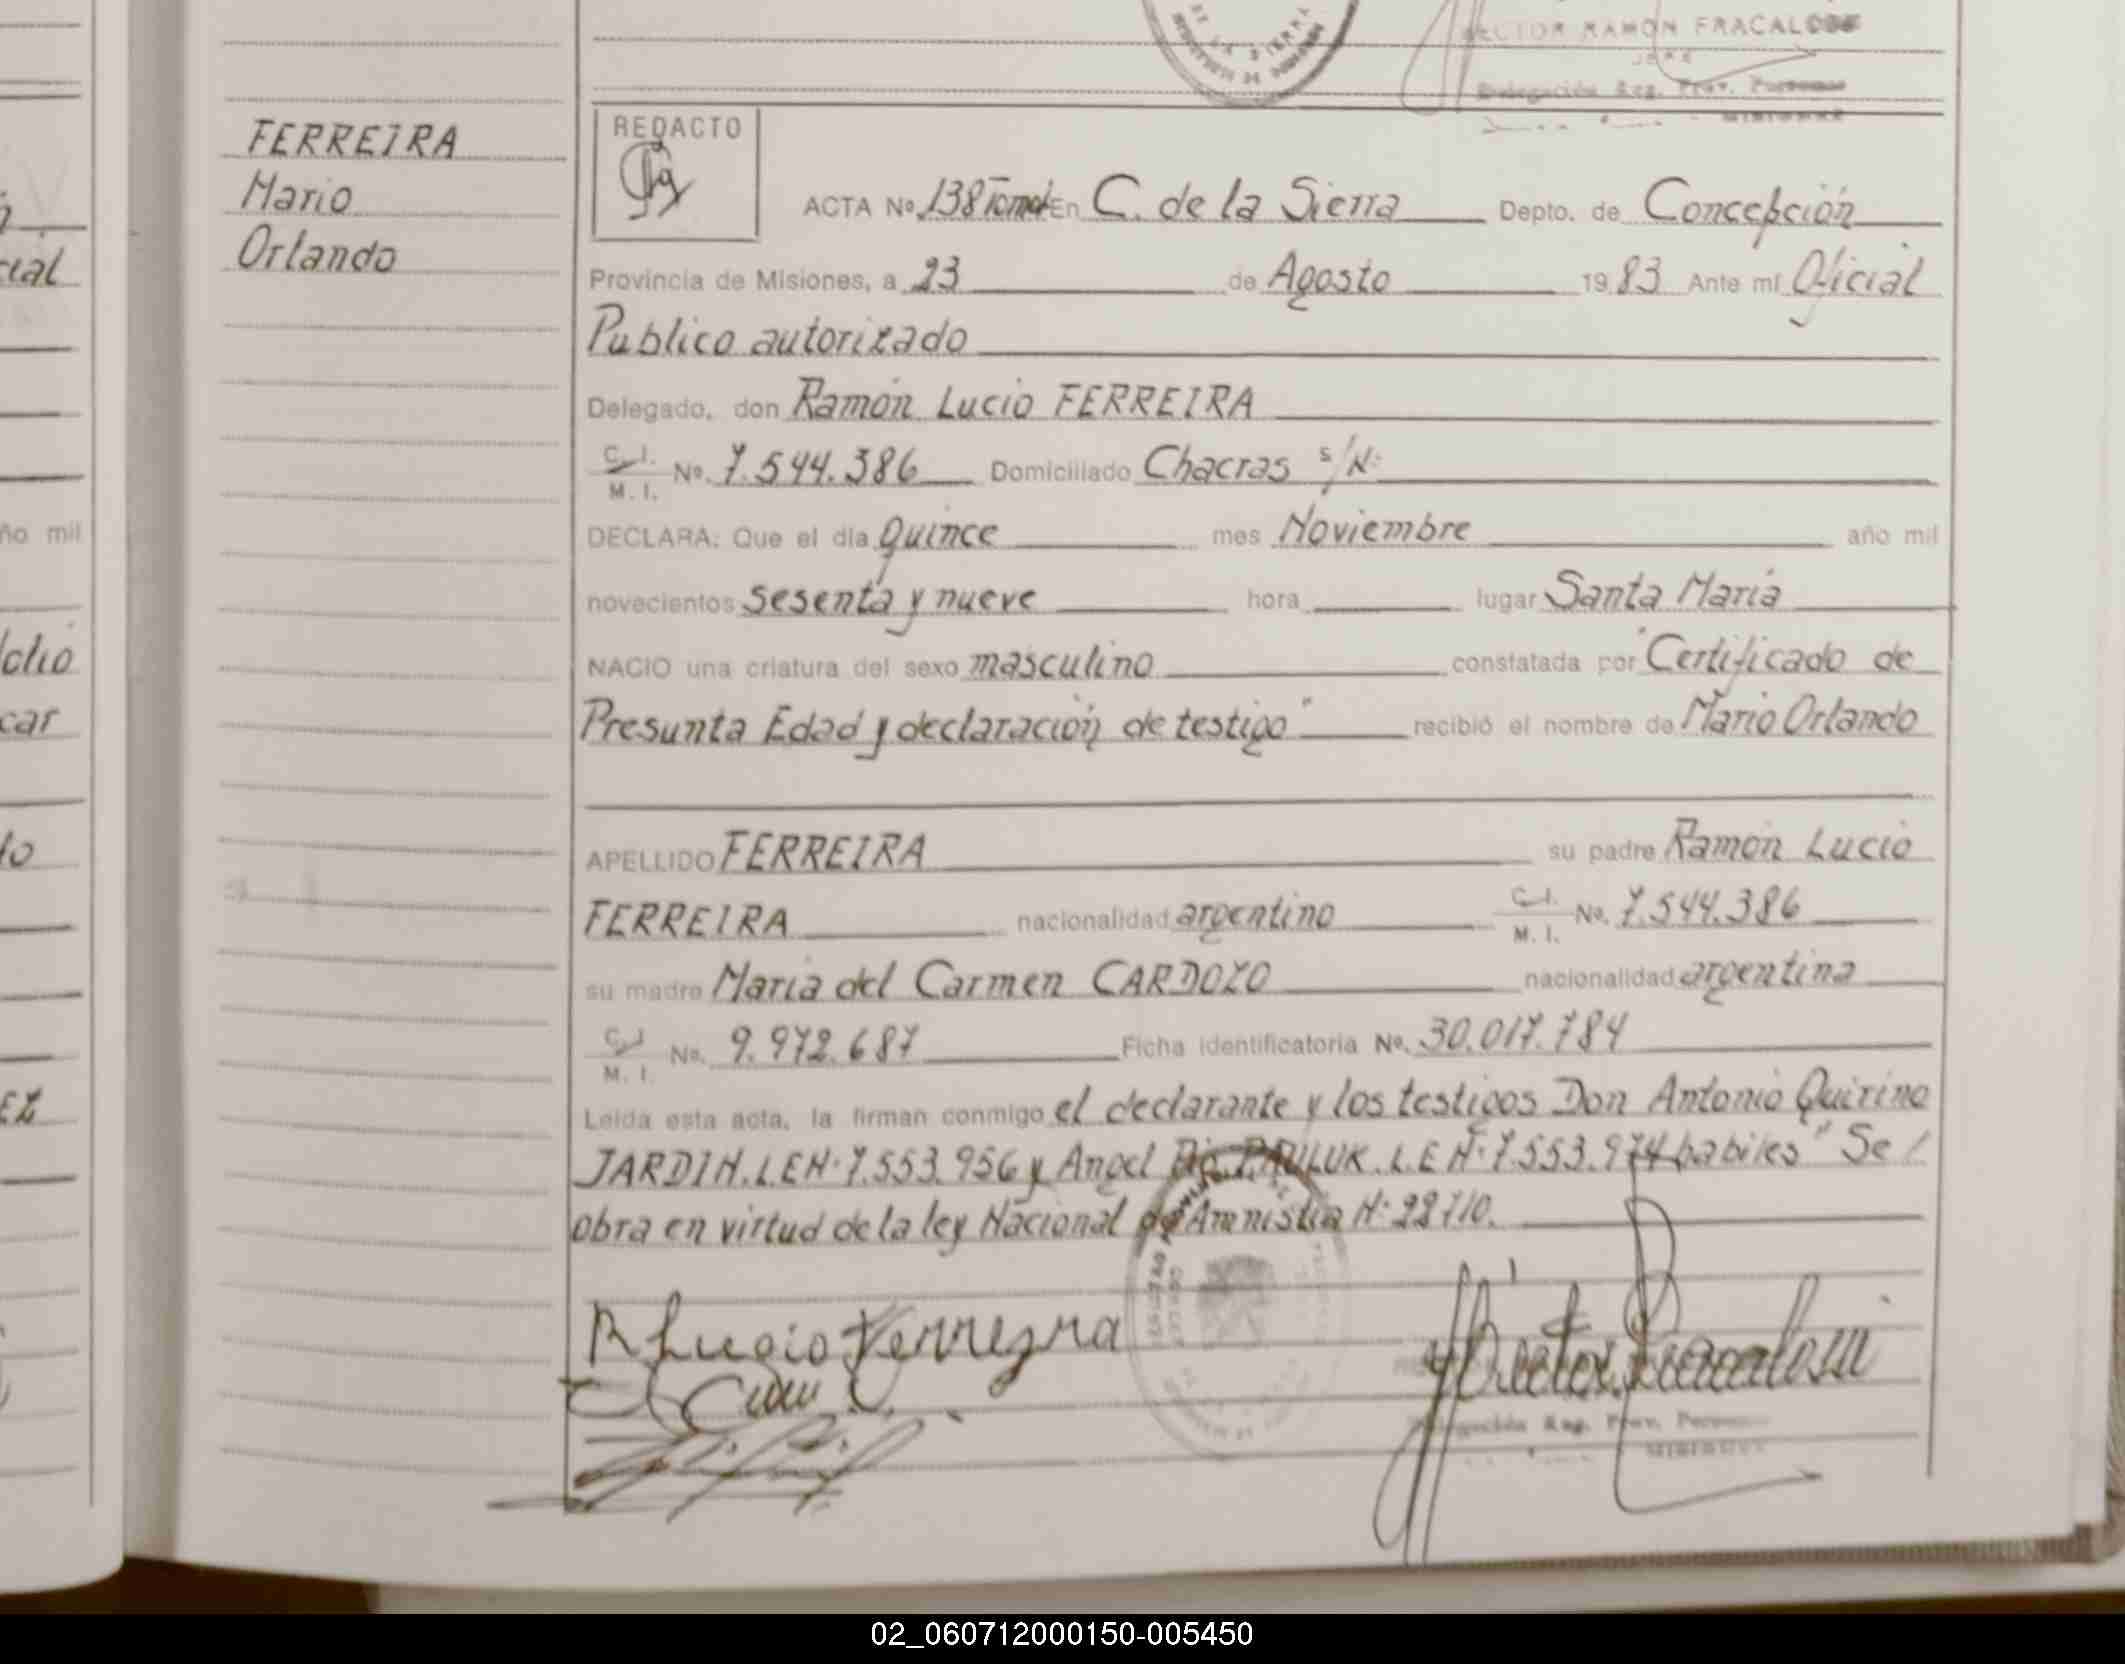 HECTOR RAMON FRACALOSSI
JEFE
Delegación Reg. Prov. Personas
FERREIRA
Mario
Orlando
REDACTO
ACTA Nº 138 Tomo I En C. de la Sierra Depto. de Concepción
Provincia de Misiones, a 23 de Agosto 1983 Ante mí Oficial
Publico autorizado
Delegado, don Ramón Lucio FERREIRA
C. I. M. I. Nº. 7.544.386 Domiciliado Chacras s/Nº
DECLARA: Que el día quince mes Noviembre año mil
novecientos sesenta y nueve hora lugar Santa María
NACIO una criatura del sexo masculino constatada por "Certificado de
Presunta Edad y declaración de testigo" recibió el nombre de Mario Orlando
APELLIDO FERREIRA su padre Ramón Lucio
FERREIRA nacionalidad argentino C. I. M. I. Nº. 7.544.386
su madre María del Carmen CARDOZO nacionalidad argentina
C. I. M. I. Nº. 9.972.687 Ficha identificatoria Nº. 30.017.784
Leída esta acta, la firman conmigo el declarante y los testigos Don Antonio Quirino
JARDIN. L.E Nº 7.553.956 y Angel PAULUK. L.E Nº 7.553.974 habiles" Se/
obra en virtud de la ley Nacional de Amnistia Nº 22710.
R Lucio Ferreyra
Delegación Reg. Prov. Personas
02_060712000150-005450